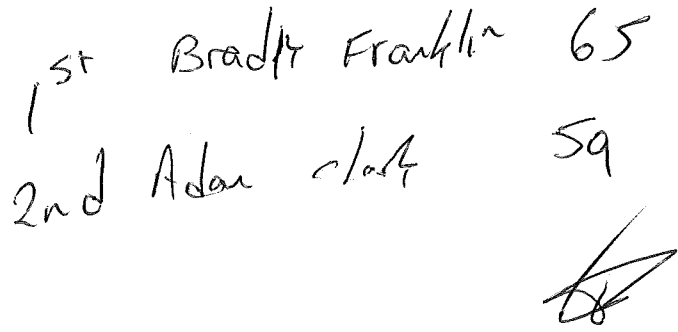 1st Bradly Franklin 65
2nd Adam Clark 59